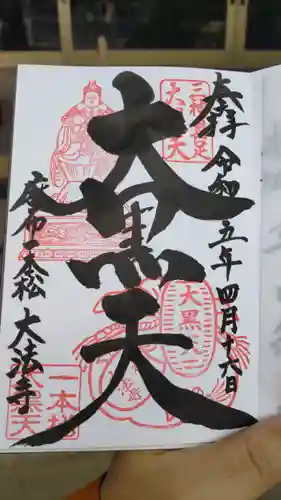 奉拝
令和五年四月十六日
三神具足
大黒天
大黒天
大黒天
麻布一本松
大法寺
一本松
大黒天